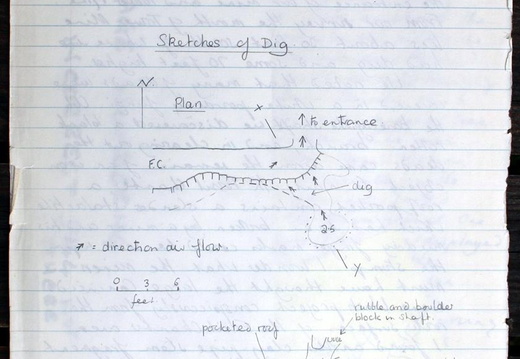 Sketches of Dig
Plan
x
↑ to entrance
F.C.
dig
25
= direction air flow
Y
0 3 6
feet
rubble and boulder
block in shaft.
pocketed roof